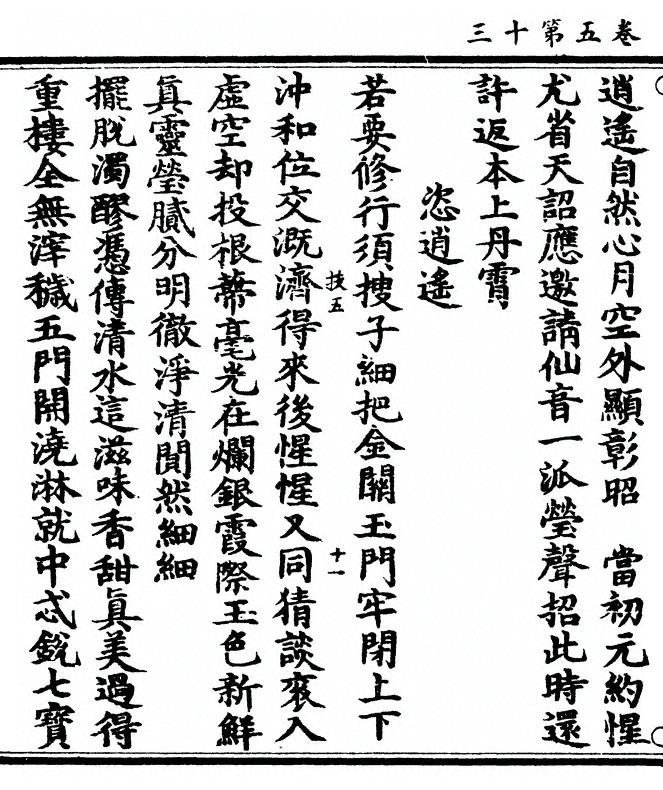 卷五第十三
逍遙自然心月空外顯彰昭　當初元約惺
尤省天詔應邀請仙音一派瑩聲招此時還
許返本上丹霄
恣逍遙
若要修行須搜子細把金關玉門牢閉上下
枝五　十一
沖和位交溉濟得來後惺惺又同猜談褎入
虛空却投根蔕毫光在爛銀霞際玉色新鮮
眞靈瑩膩分明徹淨清閒然細細
擺脫濁醪憑傳清水這滋味香甜眞美過得
重樓全無滓穢五門開澆淋就中忒銳七寶